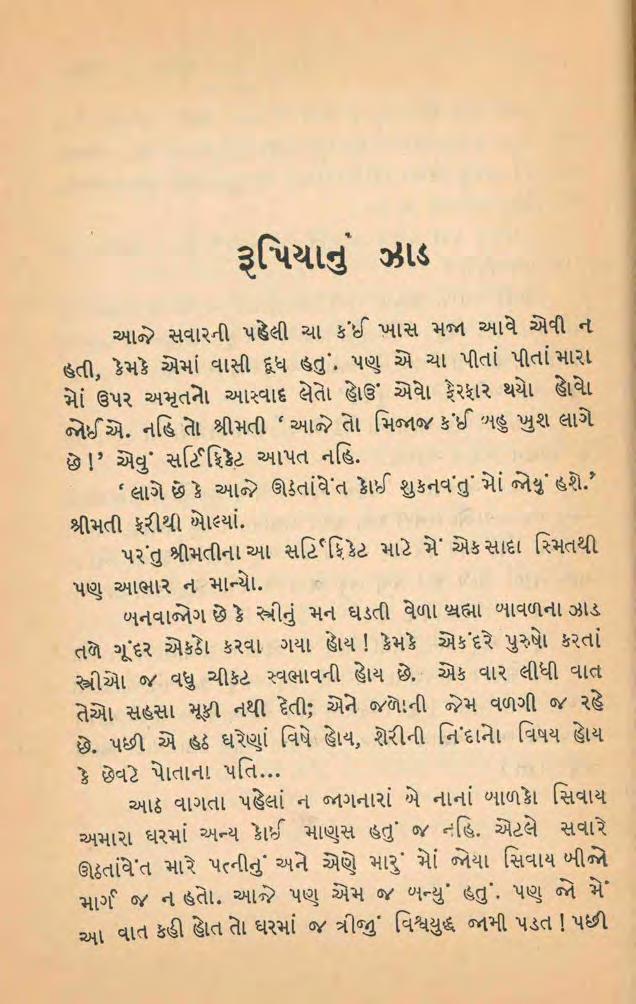 રૂપિયાનું ઝાડ
આજે સવારની પહેલી ચા કંઈ ખાસ મજા આવે એવી ન
હતી, કેમકે એમાં વાસી દૂધ હતું. પણ એ ચા પીતાં પીતાં મારા
મોં ઉપર અમૃતનો આસ્વાદ લેતો હોઉં એવો ફેરફાર થયો હોવો
જોઈએ. નહિ તો શ્રીમતી ‘ આજે તો મિજાજ કંઈ બહુ ખુશ લાગે
છે !’ એવું સર્ટિફિકેટ આપત નહિ.
‘ લાગે છે કે આજે ઊઠતાંવેંત કોઈ શુકનવંતું મોં જોયું હશે.’
શ્રીમતી ફરીથી બોલ્યાં.
પરંતુ શ્રીમતીના આ સર્ટિફિકેટ માટે મેં એક સાદા સ્મિતથી
પણ આભાર ન માન્યો.
બનવાજોગ છે કે સ્ત્રીનું મન ઘડતી વેળા બ્રહ્મા બાવળના ઝાડ
તળે ગૂંદર એકઠો કરવા ગયા હોય ! કેમકે એકંદરે પુરુષો કરતાં
સ્ત્રીઓ જ વધુ ચીકટ સ્વભાવની હોય છે. એક વાર લીધી વાત
તેઓ સહસા મૂકી નથી દેતી; એને જળોની જેમ વળગી જ રહે
છે. પછી એ હઠ ઘરેણાં વિષે હોય, શેરીની નિંદાનો વિષય હોય
કે છેવટે પોતાના પતિ...
આઠ વાગતા પહેલાં ન જાગનારાં બે નાનાં બાળકો સિવાય
અમારા ઘરમાં અન્ય કોઈ માણસ હતું જ નહિ. એટલે સવારે
ઊઠતાંવેંત મારે પત્નીનું અને એણે મારું મોં જોયા સિવાય બીજો
માર્ગ જ ન હતો. આજે પણ એમ જ બન્યું હતું. પણ જો મેં
આ વાત કહી હોત તો ઘરમાં જ ત્રીજું વિશ્વયુદ્ધ જામી પડત ! પછી